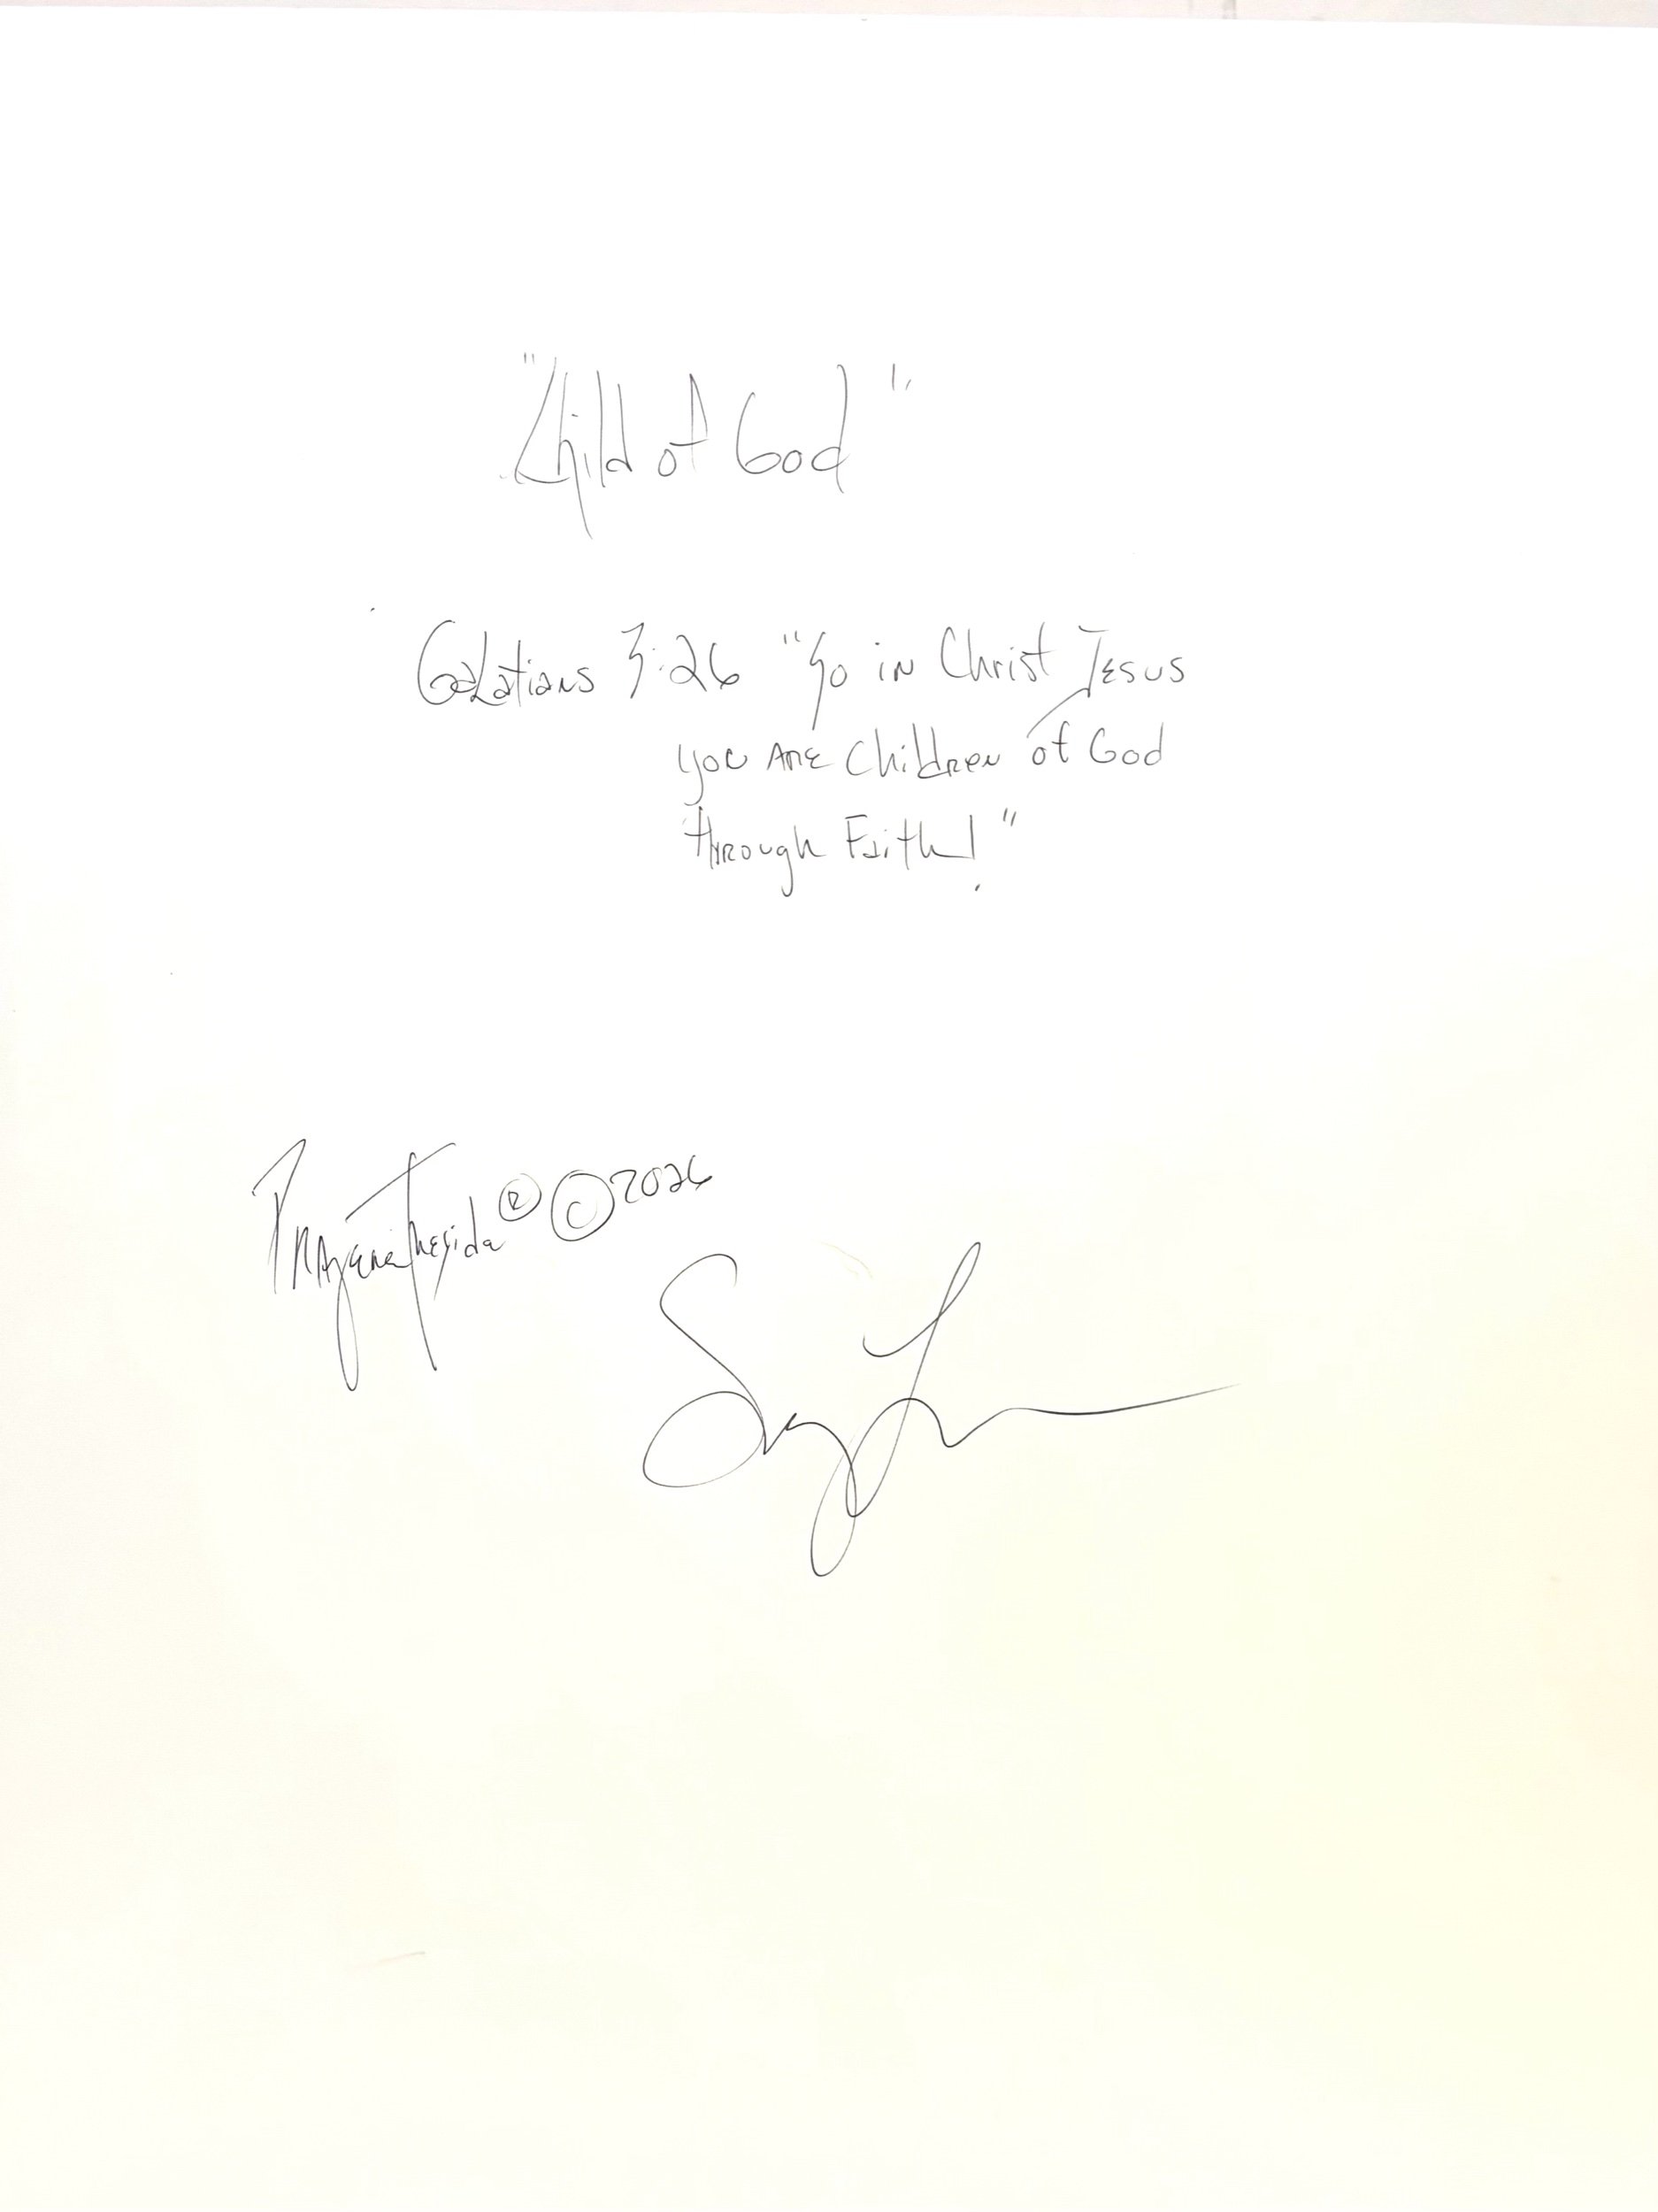 "Child of God"
Galatians 3:26 "So in Christ Jesus
you are children of God
through Faith!"
® © 2026